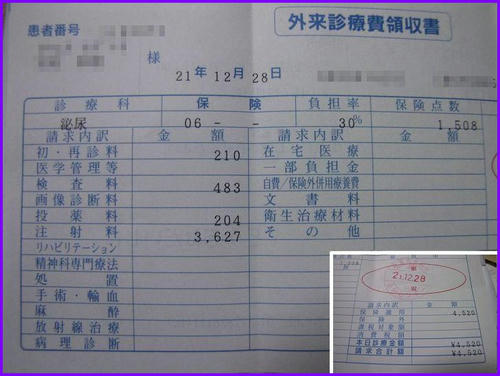 外来診療費領収書
患者番号
様
21年12月28日
診療科 保険 負担率 保険点数
泌尿 06 - - 30% 1,508
請求内訳 金額 請求内訳 金額
初・再診料 210 在宅医療
医学管理等 一部負担金
検査料 483 自費/保険外併用療養費
画像診断料 文書料
投薬料 204 衛生治療材料
注射料 3,627 その他
リハビリテーション
精神科専門療法
処置
手術・輸血
麻酔
放射線治療
病理診断
21.12.28
請求内訳 金額
保険適用 4,520
保険外
課税対象額
消費税額
本日診療金額 ¥4,520
請求合計額 ¥4,520